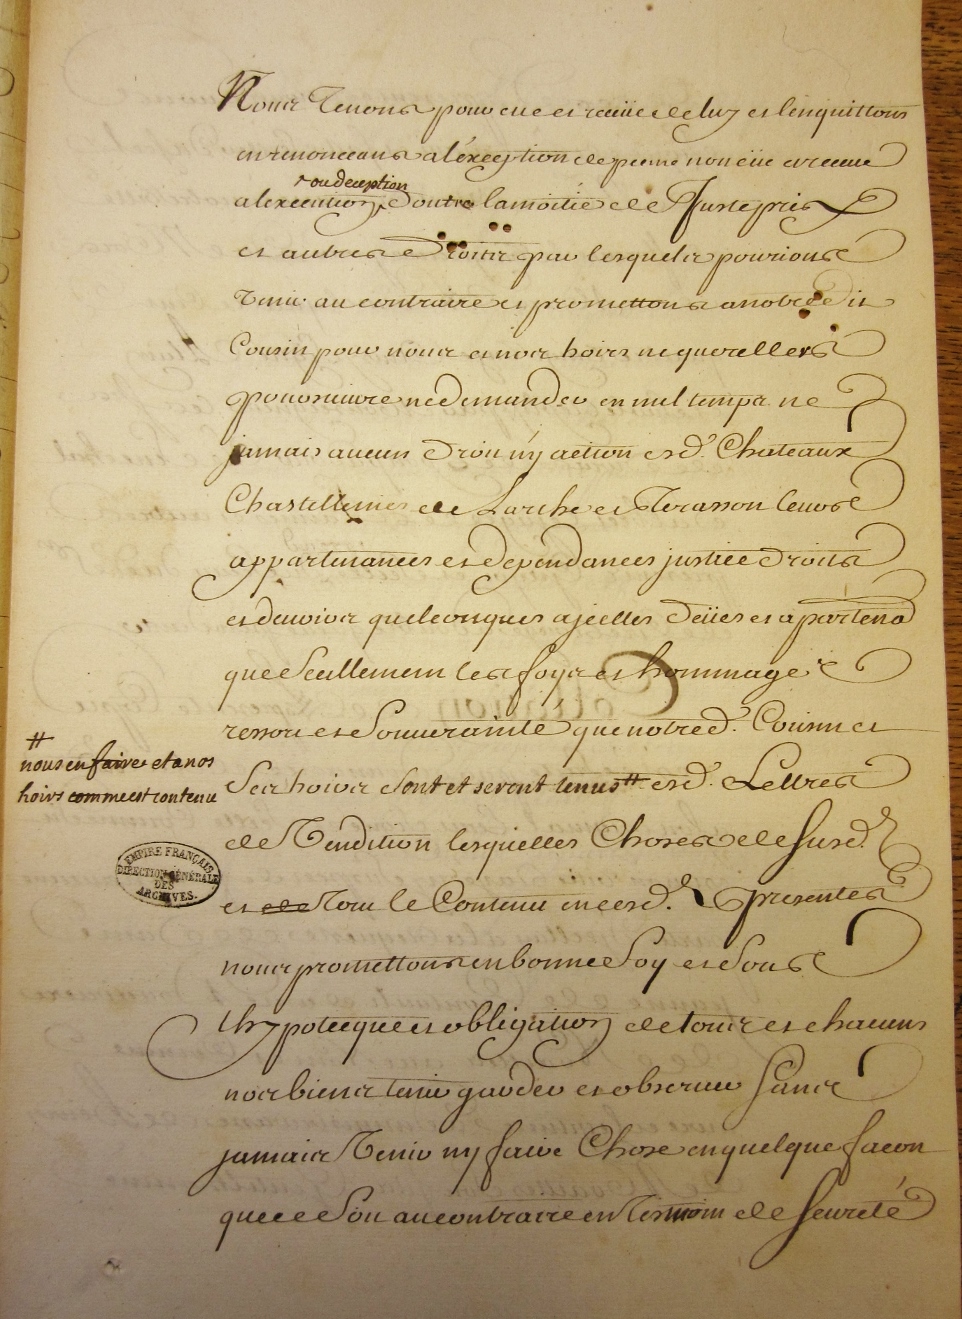 Nous Tenons pour eue et receüe de luy et l'enquittons
en renonceans a l'éxception de pecune non eüe et receue
^ ou deception
a l'exception, d'outre la moitié de Juste pris
et autres Droits par lesquels pourions
Venir au contraire et promettons a notredit
Cousin pour nous et nos hoirs ne quereller
poursuivre ne demander en nul temps ne
jamais aucun Droit ny action esd. Chateaux
Chastellenies de Larche et Terasson leurs
appartenances et dependances justice Droits
et devoirs quelconques ajcelles Deües et apartenō
que Seullement les foys et hommage
ressort et Souverainté que notred. Cousin et
Ses hoirs sont et seront tenus # esd. Lettres
#
nous en faire et a nos
hoirs comme est contenu
de Vendition lesquelles Choses de Susd.
et de Tout le Contenu en cesd. presentes
nous promettons en bonne foy et Sous
Lhypotecque et obligation de tous et chacuns
nos biens tenir garder et observer Sans
jamais Venir ny faire Chose en quelque facon
que ce Soit au contraire en Tesmoin de Seureté
EMPIRE FRANÇAIS
DIRECTION GÉNÉRALE
DES
ARCHIVES.